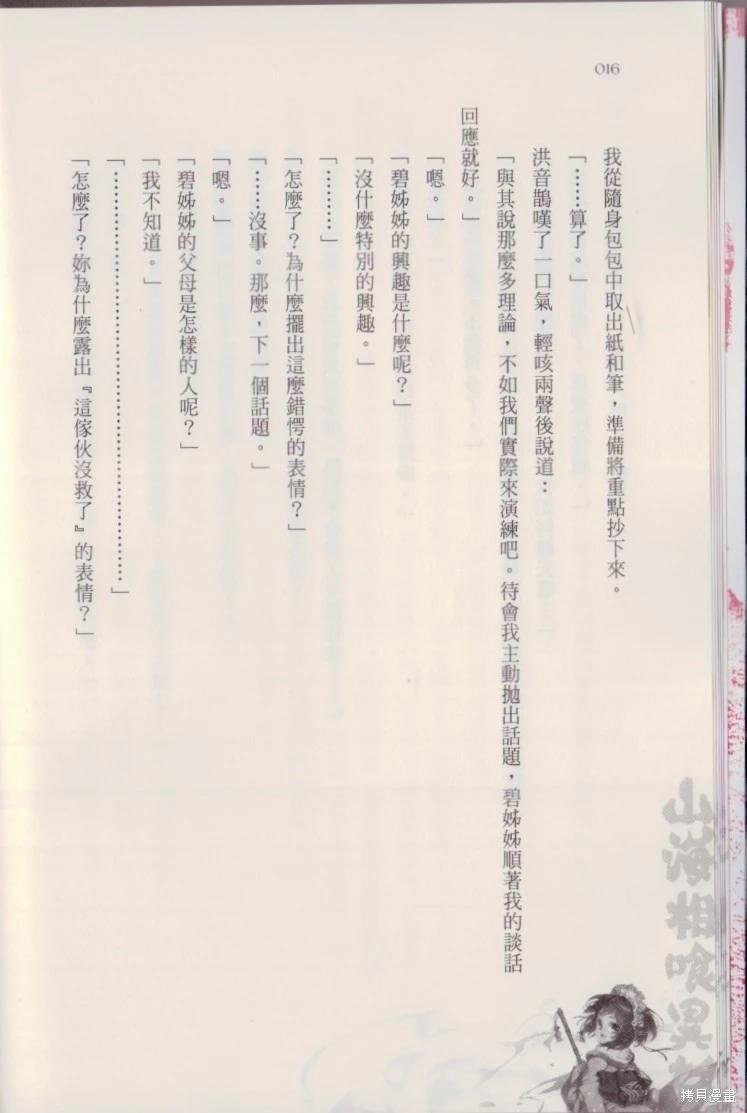 016
我從隨身包包中取出紙和筆，準備將重點抄下來。
「……算了。」
洪音鵲嘆了一口氣，輕咳兩聲後說道：
「與其說那麼多理論，不如我們實際來演練吧。待會我主動拋出話題，碧姊姊順著我的談話
回應就好。」
「嗯。」
「碧姊姊的興趣是什麼呢？」
「沒什麼特別的興趣。」
「………」
「怎麼了？為什麼擺出這麼錯愕的表情？」
「……沒事。那麼，下一個話題。」
「嗯。」
「碧姊姊的父母是怎樣的人呢？」
「我不知道。」
「………………………………………………………」
「怎麼了？妳為什麼露出『這傢伙沒救了』的表情？」
山海相喰異
拷貝漫畫